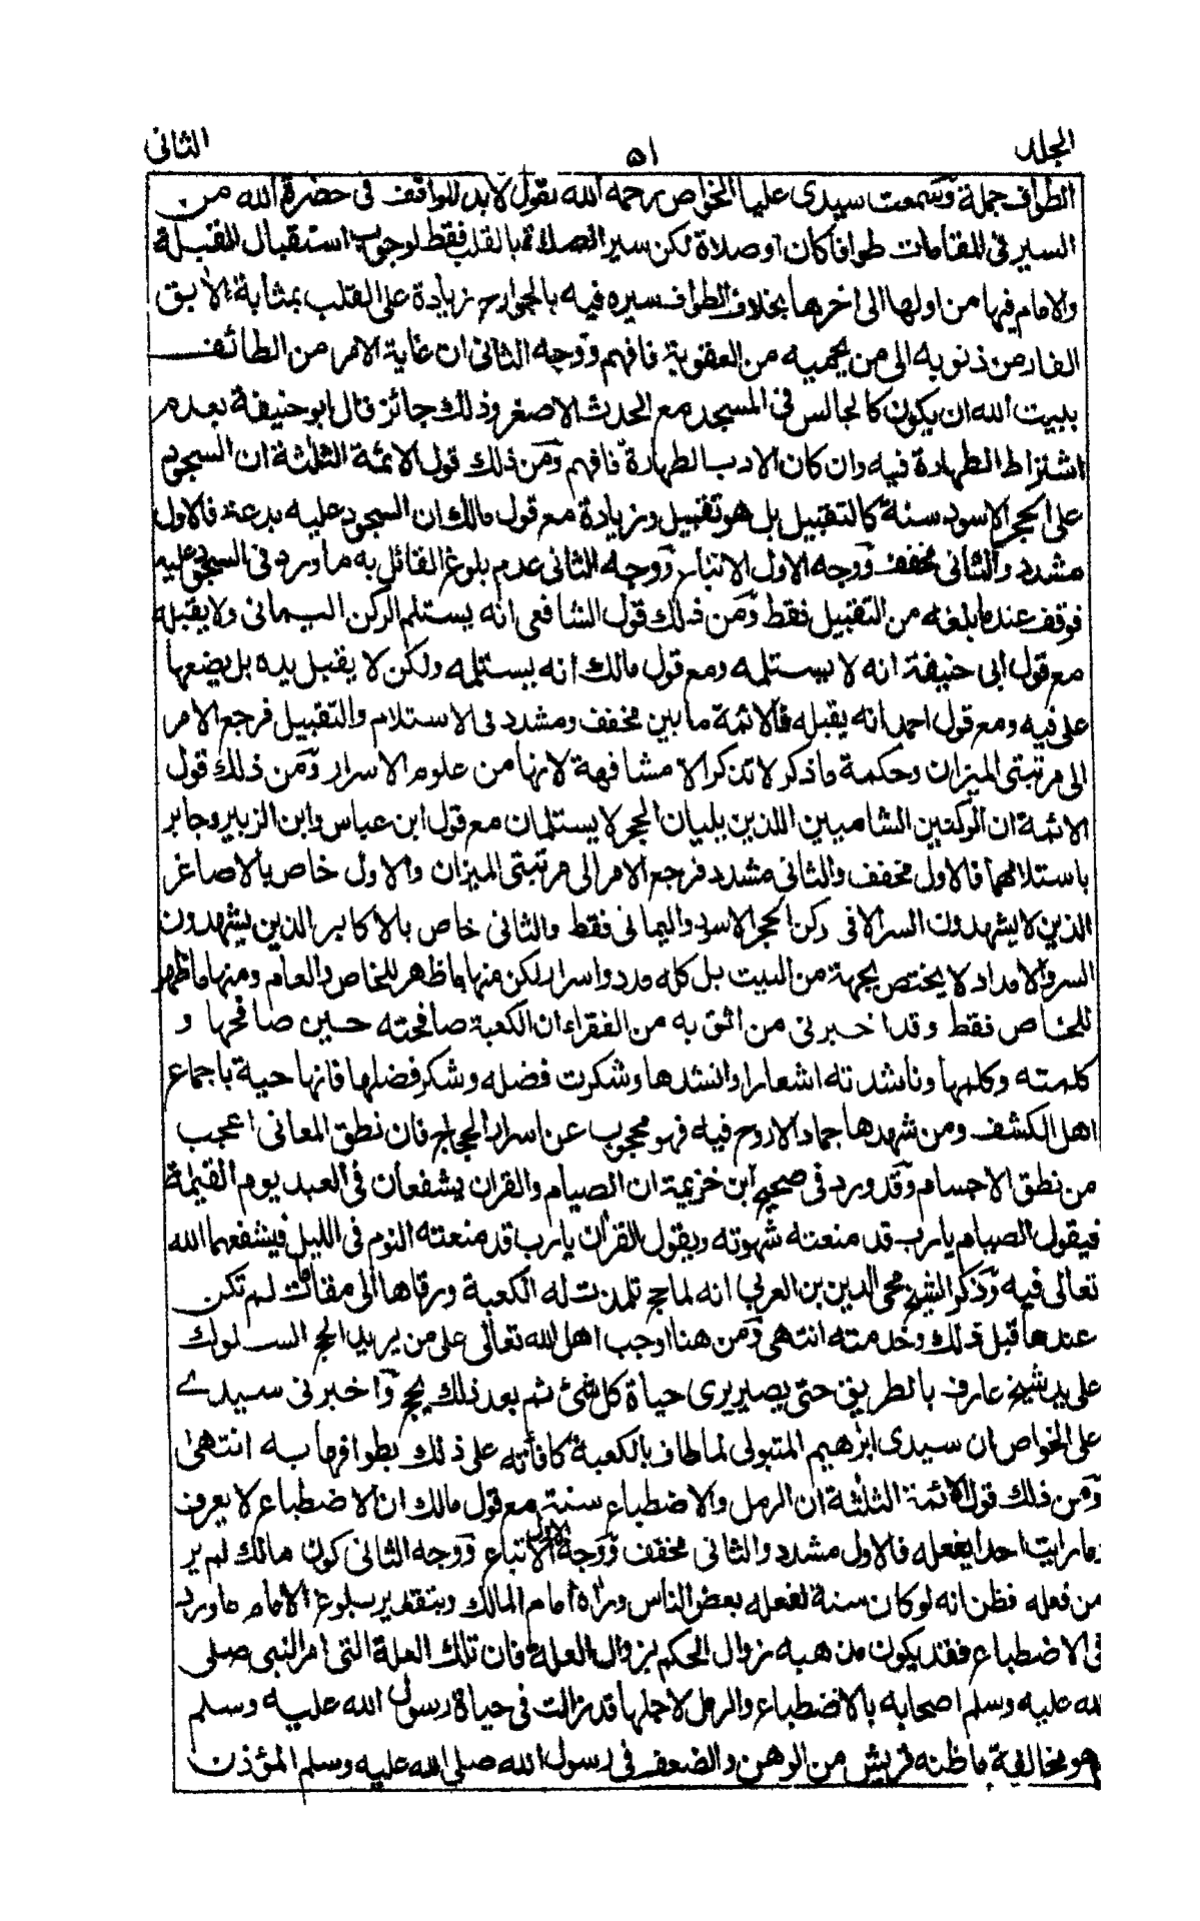 الجلد ٥١ الثانى
الطواف جملة وسمعت سيدى عليا الخواص رحمه الله يقول لابد للواقف فى حضرة الله من
السير فى المقامات طوافا كان او صلاة لكن سير الصلاة بالقلب فقط لوجوب استقبال القبلة
والامام فيها من اولها الى اخرها بخلاف الطواف سيره فيه بالجوارح زيادة على القلب بمثابة الابق
الفار من ذنوبه الى من يحميه من العقوبة فافهم ووجه الثانى ان غاية الامر من الطائف
ببيت الله ان يكون كالجالس فى المسجد مع الحدث الاصغر وذلك جائز قال ابو حنيفة بعدم
اشتراط الطهارة فيه وان كان الادب الطهارة فافهم ومن ذلك قول الائمة الثلثة ان السجود
على الحجر الاسود سنة كالتقبيل بل هو تقبيل وزيادة مع قول مالك ان السجود عليه بدعة فالاول
مشدد والثانى مخفف ووجه الاول الاتباع ووجه الثانى عدم بلوغ القائل به ما ورد فى السجود عليه
فوقف عند ما بلغه من التقبيل فقط ومن ذلك قول الشافعى انه يستلم الركن اليمانى ولا يقبله
مع قول ابى حنيفة انه لا يستلمه ومع قول مالك انه يستلمه ولكن لا يقبل يده بل يضعها
على فيه ومع قول احمد انه يقبله فالائمة ما بين مخفف ومشدد فى الاستلام والتقبيل فرجع الامر
الى مرتبتى الميزان وحكمة ما ذكر لا تذكر الا مشافهة لانها من علوم الاسرار ومن ذلك قول
الائمة ان الركنين الشاميين اللذين يليان الحجر لا يستلمان مع قول ابن عباس وابن الزبير وجابر
باستلامهما فالاول مخفف والثانى مشدد فرجع الامر الى مرتبتى الميزان والاول خاص بالاصاغر
الذين لا يشهدون السر الا فى ركن الحجر الاسود واليمانى فقط والثانى خاص بالاكابر الذين يشهدون
السر والامداد لا يختص بجهة من البيت بل كله مدد واسرار لكن منها ما ظهر للخاص والعام ومنها ما ظهر
للخاص فقط وقد اخبرنى من اثق به من الفقراء ان الكعبة صافحته حين صافحها و
كلمته وكلمها وناشدته اشعارا وانشدها وشكرت فضله وشكر فضلها فانها حية باجماع
اهل الكشف ومن شهدها جمادا لا روح فيه فهو محجوب عن اسرار الحجاج فان نطق المعانى اعجب
من نطق الاجسام وقد ورد فى صحيح ابن خزيمة ان الصيام والقران يشفعان فى العبد يوم القيمة
فيقول الصيام يا رب قد منعته شهوته ويقول القران يا رب قد منعته النوم فى الليل فيشفعهما الله
تعالى فيه وذكر الشيخ محى الدين بن العربى انه لما حج تلمذت له الكعبة ورقاها الى مقامات لم تكن
عندها قبل ذلك وخدمته انتهى ومن هنا اوجب اهل الله تعالى على من يريد الحج السلوك
على يد شيخ عارف بالطريق حتى يصير يرى حياة كل شئ ثم بعد ذلك يحج واخبرنى سيدے
على الخواص ان سيدى ابرهيم المتبولى لما طاف بالكعبة كافأته على ذلك بطوافها به انتهى
ومن ذلك قول الائمة الثلثة ان الرمل والاضطباع سنة مع قول مالك ان الاضطباع لا يعرف
وما رايت احدا يفعله فالاول مشدد والثانى مخفف ووجه الاول الاتباع ووجه الثانى كون مالك لم ير
من فعله فظن انه لو كان سنة لفعله بعض الناس وراه امام المالك وبتقدير بلوغ الامام ما ورد
فى الاضطباع فقد يكون مذهبه زوال الحكم بزوال العلة فان تلك العلة التى امر النبى صلى
لله عليه وسلم اصحابه بالاضطباع والرمل لاجلها قد زالت فى حياة رسول الله عليه وسلم
وهو مخالفة ما ظنه قريش من الوهن والضعف فى رسول الله صلى الله عليه وسلم المؤذن